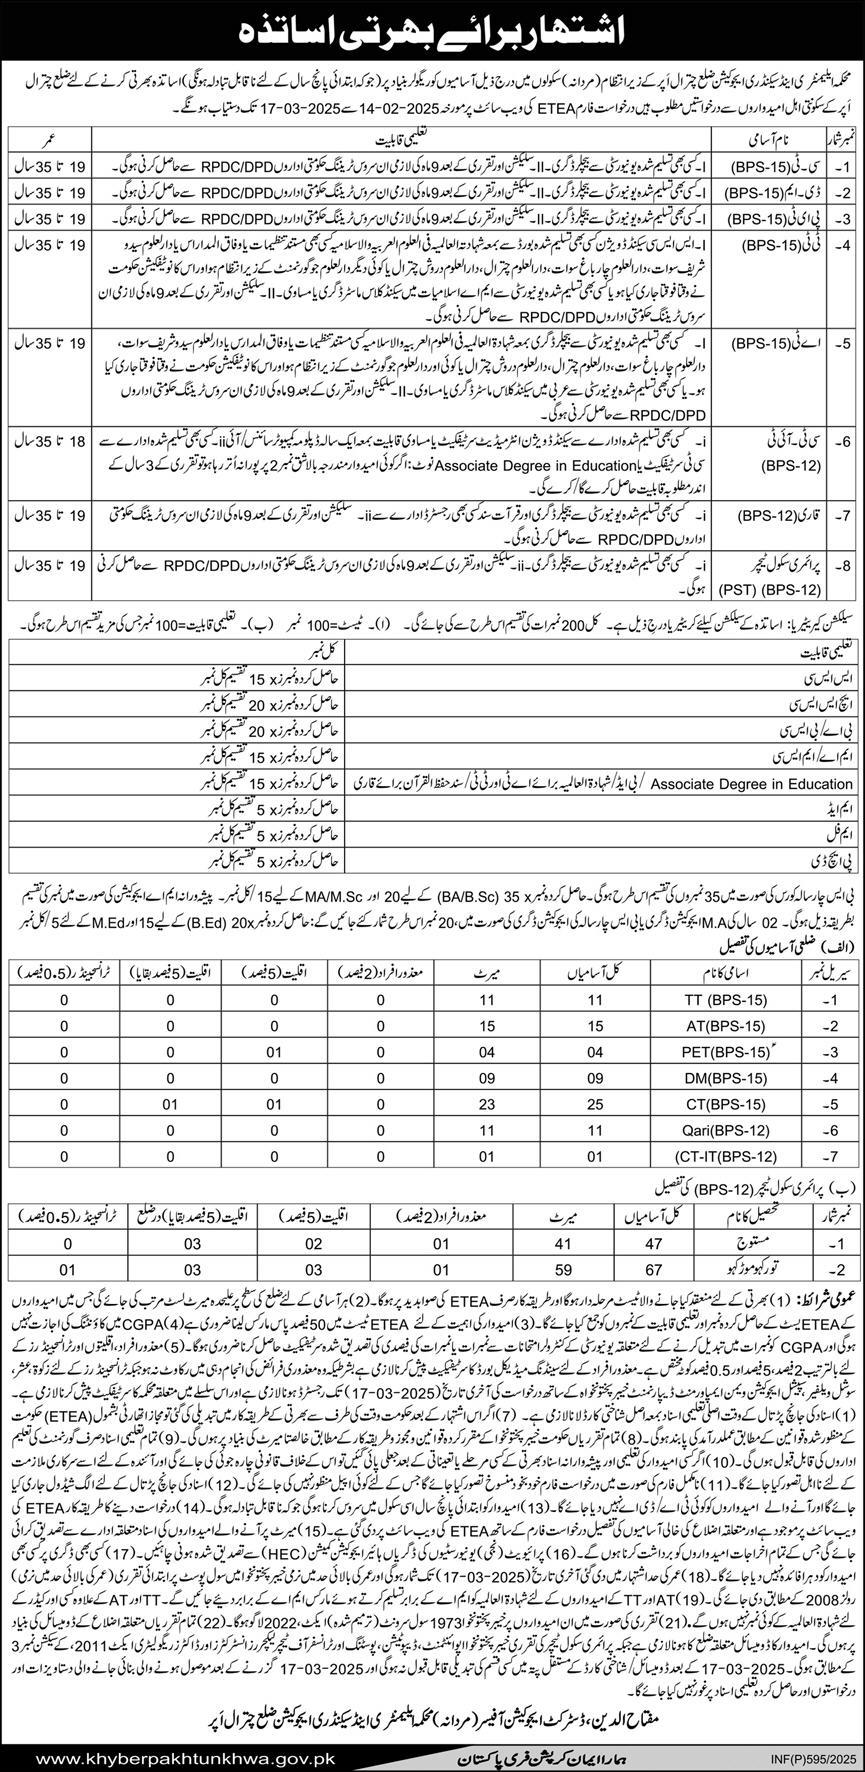 اشتہار برائے بھرتی اساتذہ
محکمہ ایلیمنٹری اینڈ سیکنڈری ایجوکیشن ضلع چترال اَپر کے زیر انتظام (مردانہ) سکولوں میں درج ذیل آسامیوں کو ریگولر بنیاد پر (جو کہ ابتدائی پانچ سال کے لئے نا قابل تبادلہ ہونگی) اساتذہ بھرتی کرنے کے لئے ضلع چترال
اَپر کے سکونتی اہل امیدواروں سے درخواستیں مطلوب ہیں درخواست فارم ETEA کی ویب سائٹ پر مورخہ 14-02-2025 سے 17-03-2025 تک دستیاب ہونگے۔
نمبر شمار نام آسامی تعلیمی قابلیت عمر
1۔ سی۔ٹی (BPS-15) I۔ کسی بھی تسلیم شدہ یونیورسٹی سے بیچلر ڈگری۔ II۔ سلیکشن اور تقرری کے بعد 9 ماہ کی لازمی ان سروس ٹریننگ حکومتی اداروں RPDC/DPD سے حاصل کرنی ہوگی۔ 19 تا 35 سال
2۔ ڈی۔ایم (BPS-15) I۔ کسی بھی تسلیم شدہ یونیورسٹی سے بیچلر ڈگری۔ II۔ سلیکشن اور تقرری کے بعد 9 ماہ کی لازمی ان سروس ٹریننگ حکومتی اداروں RPDC/DPD سے حاصل کرنی ہوگی۔ 19 تا 35 سال
3۔ پی ای ٹی (BPS-15) I۔ کسی بھی تسلیم شدہ یونیورسٹی سے بیچلر ڈگری۔ II۔ سلیکشن اور تقرری کے بعد 9 ماہ کی لازمی ان سروس ٹریننگ حکومتی اداروں RPDC/DPD سے حاصل کرنی ہوگی۔ 19 تا 35 سال
4۔ ٹی ٹی (BPS-15) I۔ ایس ایس سی سیکنڈ ڈویژن کسی بھی تسلیم شدہ بورڈ سے بمعہ شہادۃ العالمیہ فی العلوم العربیہ والاسلامیہ کسی بھی مستند تنظیمات یا وفاق المدارس یا دار العلوم سیدو 19 تا 35 سال
شریف سوات، دار العلوم چار باغ سوات، دار العلوم چترال، دار العلوم دروش چترال یا کوئی دیگر دار العلوم جو گورنمنٹ کے زیر انتظام ہو اور اس کا نوٹیفکیشن حکومت
نے وقتا فوقتا جاری کیا ہو یا کسی بھی تسلیم شدہ یونیورسٹی سے ایم اے اسلامیات میں سیکنڈ کلاس ماسٹر ڈگری یا مساوی۔ II۔ سلیکشن اور تقرری کے بعد 9 ماہ کی لازمی ان
سروس ٹریننگ حکومتی اداروں RPDC/DPD سے حاصل کرنی ہوگی۔
5۔ اے ٹی (BPS-15) I۔ کسی بھی تسلیم شدہ یونیورسٹی سے بیچلر ڈگری بمعہ شہادۃ العالمیہ فی العلوم العربیہ والاسلامیہ کسی مستند تنظیمات یا وفاق المدارس یا دار العلوم سیدو شریف سوات، 19 تا 35 سال
دار العلوم چار باغ سوات، دار العلوم چترال، دار العلوم دروش چترال یا کوئی اور دار العلوم جو گورنمنٹ کے زیر انتظام ہو اور اس کا نوٹیفکیشن حکومت نے وقتا فوقتا جاری کیا
ہو۔ یا کسی بھی تسلیم شدہ یونیورسٹی سے عربی میں سیکنڈ کلاس ماسٹر ڈگری یا مساوی۔ II۔ سلیکشن اور تقرری کے بعد 9 ماہ کی لازمی ان سروس ٹریننگ حکومتی اداروں
RPDC/DPD سے حاصل کرنی ہوگی۔
6۔ سی ٹی۔آئی ٹی (BPS-12) i۔ کسی بھی تسلیم شدہ ادارے سے سیکنڈ ڈویژن انٹرمیڈیٹ سرٹیفکیٹ یا مساوی قابلیت بمعہ ایک سالہ ڈپلومہ کمپیوٹر سائنس/آئی ii۔ کسی بھی تسلیم شدہ ادارے سے 18 تا 35 سال
سی ٹی سرٹیفکیٹ یا Associate Degree in Education نوٹ: اگر کوئی امیدوار مندرجہ بالا شق نمبر 2 پر پورا نہ اُتر رہا ہو تو تقرری کے 3 سال کے
اندر مطلوبہ قابلیت حاصل کرے گا/کرے گی۔
7۔ قاری (BPS-12) i۔ کسی بھی تسلیم شدہ یونیورسٹی سے بیچلر ڈگری اور قرآت سند کسی بھی رجسٹرڈ ادارے سے ii۔ سلیکشن اور تقرری کے بعد 9 ماہ کی لازمی ان سروس ٹریننگ حکومتی 19 تا 35 سال
اداروں RPDC/DPD سے حاصل کرنی ہوگی۔
8۔ پرائمری سکول ٹیچر (PST) (BPS-12) i۔ کسی بھی تسلیم شدہ یونیورسٹی سے بیچلر ڈگری۔ ii۔ سلیکشن اور تقرری کے بعد 9 ماہ کی لازمی ان سروس ٹریننگ حکومتی اداروں RPDC/DPD سے حاصل کرنی 19 تا 35 سال
ہوگی۔
سیلکشن کیریٹیریا: اساتذہ کے سیلکشن کیلئے کریٹیریا درج ذیل ہے۔ کل 200 نمبرات کی تقسیم اس طرح سے کی جائے گی۔ (ا)۔ ٹیسٹ=100 نمبر (ب)۔ تعلیمی قابلیت=100 نمبر جس کی مزید تقسیم اس طرح ہوگی۔
تعلیمی قابلیت کل نمبر
ایس ایس سی حاصل کردہ نمبرز x 15 تقسیم کل نمبر
ایچ ایس ایس سی حاصل کردہ نمبرز x 20 تقسیم کل نمبر
بی اے/بی ایس سی حاصل کردہ نمبرز x 20 تقسیم کل نمبر
ایم اے/ایم ایس سی حاصل کردہ نمبرز x 15 تقسیم کل نمبر
Associate Degree in Education /بی ایڈ/شہادۃ العالمیہ برائے اے ٹی اور ٹی ٹی/سند حفظ القرآن برائے قاری حاصل کردہ نمبرز x 15 تقسیم کل نمبر
ایم ایڈ حاصل کردہ نمبرز x 5 تقسیم کل نمبر
ایم فل حاصل کردہ نمبرز x 5 تقسیم کل نمبر
پی ایچ ڈی حاصل کردہ نمبرز x 5 تقسیم کل نمبر
بی ایس چار سالہ کورس کی صورت میں 35 نمبروں کی تقسیم اس طرح ہوگی۔ حاصل کردہ نمبر x 35 (BA/B.Sc) کے لیے 20 اور MA/M.Sc کے لیے 15/کل نمبر۔ پیشہ ورانہ ایم اے ایجوکیشن کی صورت میں نمبر کی تقسیم
بطریقہ ذیل ہوگی۔ 02 سال کی M.A ایجوکیشن ڈگری یا بی ایس چار سالہ کی ایجوکیشن ڈگری کی صورت میں، 20 نمبر اس طرح شمار کئے جائیں گے: حاصل کردہ نمبر 20x (B.Ed) کے لیے 15 اور M.Ed کے لئے 5/کل نمبر
(الف) ضلعی آسامیوں کی تفصیل
سیریل نمبر اسامی کا نام کل آسامیاں میرٹ معذور افراد (2 فیصد) اقلیت (5 فیصد) اقلیت (5 فیصد بقایا) ٹرانسجینڈر (0.5 فیصد)
1۔ TT (BPS-15) 11 11 0 0 0 0
2۔ AT(BPS-15) 15 15 0 0 0 0
3۔ PET(BPS-15) 04 04 0 01 0 0
4۔ DM(BPS-15) 09 09 0 0 0 0
5۔ CT(BPS-15) 25 23 0 01 01 0
6۔ Qari(BPS-12) 11 11 0 0 0 0
7۔ CT-IT(BPS-12) 01 01 0 0 0 0
(ب) پرائمری سکول ٹیچر (BPS-12) کی تفصیل
نمبر شمار تحصیل کا نام کل آسامیاں میرٹ معذور افراد (2 فیصد) اقلیت (5 فیصد) اقلیت (5 فیصد بقایا) در ضلع ٹرانسجینڈر (0.5 فیصد)
1۔ مستوج 47 41 01 02 03 0
2۔ تورکہو موڑکہو 67 59 01 03 03 01
عمومی شرائط: (1) بھرتی کے لئے منعقد کیا جانے والا ٹیسٹ مرحلہ وار ہوگا اور طریقہ کار صرف ETEA کی صوابدید پر ہوگا۔ (2) ہر آسامی کے لئے ضلع کی سطح پر علیحدہ میرٹ لسٹ مرتب کی جائے گی جس میں امیدواروں
کے ETEA ٹیسٹ کے حاصل کردہ نمبر اور تعلیمی قابلیت کے نمبروں کو جمع کیا جائے گا۔ (3) امیدوار کی اہمیت کے لئے ETEA ٹیسٹ میں 50 فیصد پاس مارکس لینا ضروری ہے (4) CGPA میں کاؤنٹنگ کی اجازت نہیں
ہوگی اور CGPA کو نمبرات میں تبدیل کرنے کے لئے متعلقہ یونیورسٹی کے کنٹرولر امتحانات سے نمبرات یا نمبرات کی فیصدی کی تصدیق شدہ سرٹیفکیٹ حاصل کرنا ضروری ہوگا۔ (5) معذور افراد، اقلیتوں اور ٹرانسجینڈرز کے
لئے بالترتیب 2 فیصد، 5 فیصد اور 0.5 فیصد کوٹہ مختص ہے۔ معذور افراد کے لئے سٹینڈنگ میڈیکل بورڈ کا سرٹیفکیٹ پیش کرنا لازمی ہے بشرطیکہ وہ معذوری فرائض کی انجام دہی میں رکاوٹ نہ ہو جبکہ ٹرانسجینڈرز کے لئے زکوۃ، عشر،
سوشل ویلفیئر، سپیشل ایجوکیشن ویمن ایمپاورمنٹ ڈیپارٹمنٹ خیبر پختونخواہ کے ساتھ درخواست کی آخری تاریخ (17-03-2025) تک رجسٹرڈ ہونا لازمی ہے اور اس سلسلے میں متعلقہ محکمہ کا سرٹیفکیٹ پیش کرنا لازمی ہے۔
(1) اسناد کی جانچ پڑتال کے وقت اصلی تعلیمی اسناد بمعہ اصل شناختی کارڈ لانا لازمی ہے۔ (7) اگر اس اشتہار کے بعد حکومت وقت کی طرف سے بھرتی کے طریقہ کار میں تبدیلی کی گئی تو مجاز اتھارٹی بشمول (ETEA) حکومت
کے منظور شدہ قوانین کے مطابق عملدرآمد کی پابند ہوگی۔ (8) تمام تقرریاں حکومت خیبر پختونخوا کے مقرر کردہ قوانین و مجوزہ طریقہ کار کے مطابق خالصتاً میرٹ کی بنیاد پر ہوں گی۔ (9) تمام تعلیمی اسناد صرف گورنمنٹ کی تعلیم
اداروں کی قابل قبول ہوں گی۔ (10) اگر کسی امیدوار کی تعلیمی اور پیشہ ورانہ اسناد بھرتی کے کسی مرحلے یا تعیناتی کے بعد جعلی پائی گئیں تو اس کے خلاف قانونی چارہ جوئی کی جائے گی اور آئندہ کے لئے اسے سرکاری ملازمت
کے لئے نااہل تصور کیا جائے گا۔ (11) نامکمل فارم کی صورت میں درخواست فارم خود بخود منسوخ تصور کیا جائے گا جس کے لئے کوئی اپیل منظور نہیں کی جائے گی۔ (12) اسناد کی جانچ پڑتال کے لئے الگ شیڈول جاری کیا
جائے گا اور آنے والے امیدواروں کو کوئی ٹی اے/ڈی اے نہیں دیا جائے گا۔ (13) امیدوار کو ابتدائی پانچ سال اسی سکول میں سروس کرنا ہوگی جو کہ نا قابل تبادلہ ہوگی۔ (14) درخواست دینے کا طریقہ کار ETEA کی
ویب سائٹ پر موجود ہے اور متعلقہ اضلاع کی خالی آسامیوں کی تفصیل درخواست فارم کے ساتھ ETEA کی ویب سائٹ پر دی گئی ہے۔ (15) میرٹ پر آنے والے امیدواروں کی اسناد متعلقہ ادارے سے تصدیق کرائی
جائے گی جس کے تمام اخراجات امیدواروں کو برداشت کرنا ہوں گے۔ (16) پرائیویٹ (نجی) یونیورسٹیوں کی ڈگریاں ہائیر ایجوکیشن کمیشن (HEC) سے تصدیق شدہ ہونی چاہئیں۔ (17) کسی بھی ڈگری پر کسی بھی
امیدوار کو دہرا فائدہ نہیں دیا جائے گا۔ (18) عمر کی حد اشتہار میں دی گئی آخری تاریخ (17-03-2025) تک شمار ہوگی اور عمر کی بالائی حد میں نرمی خیبر پختونخوا میں سول پوسٹ پر ابتدائی تقرری (عمر کی بالائی حد میں نرمی)
رولز 2008 کے مطابق دی جائے گی۔ (19) AT اور TT کے امیدواروں کے لئے شہادۃ العالمیہ کو ایم اے کے برابر تسلیم کرتے ہوئے مارکس ایم اے کے برابر دیئے جائیں گے۔ TT اور AT کے علاوہ کسی اور کیڈر کے
لئے شہادۃ العالمیہ کے کوئی نمبر نہیں ہوں گے۔ (21) تقرری کی صورت میں ان امیدواروں پر خیبر پختونخوا 1973 سول سرونٹ (ترمیم شدہ) ایکٹ، 2022 لاگو ہوگا۔ (22) تمام تقرریاں متعلقہ اضلاع کے ڈومیسائل کی بنیاد
پر ہوں گی۔ امیدوار کا ڈومیسائل متعلقہ ضلع کا ہونا لازمی ہے جبکہ پرائمری سکول ٹیچر کی تقرری خیبر پختونخوا اپوائنٹمنٹ، ڈیپوٹیشن، پوسٹنگ اور ٹرانسفر آف ٹیچر لیکچررز انسٹرکٹرز اور ڈاکٹرز ریگولیٹری ایکٹ 2011، کے سیکشن نمبر 3
کے مطابق ہوگی۔ 17-03-2025 کے بعد ڈومیسائل/شناختی کارڈ کے مستقل پتہ میں کسی قسم کی تبدیلی قابل قبول نہ ہوگی اور 17-03-2025 گزرنے کے بعد موصول ہونے والی بنائی جانے والی دستاویزات اور
درخواستوں اور حاصل کردہ تعلیمی اسناد پر غور نہیں کیا جائے گا۔
مفتاح الدین، ڈسٹرکٹ ایجوکیشن آفیسر (مردانہ) محکمہ ایلیمنٹری اینڈ سیکنڈری ایجوکیشن ضلع چترال اَپر
INF(P)595/2025 ہمارا ایمان کرپشن فری پاکستان www.khyberpakhtunkhwa.gov.pk